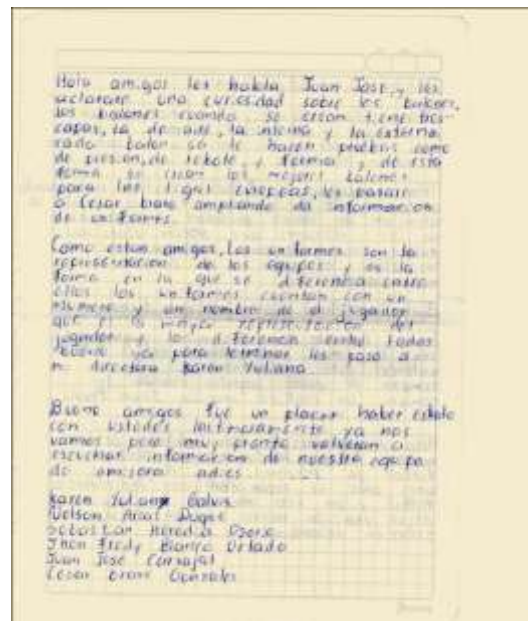 Hola amigos les habla Juan Jose, y les
aclarare una curiosidad sobre los balones,
los balones cuando se crean tiene tres
capas, la de aire, la interna y la externa
cada balon se le hacen pruebas como
de presion, de rebote, y forma y de esta
forma se crean los mejores balones
para las ligas europeas, les pasare
a Cesar bravo ampliando da informacion
de uniformes.
Como estan amigos, Los uniformes son la
representacion de los equipos y es la
forma en la que se diferencia entre
ellos los uniformes cuentan con un
numero y un nombre de el jugador
que es la mayor representacion del
jugador y lo diferencia entre todos
bueno ya para terminar les paso a
mi directora Karen Yuliana.
Bueno amigos fue un placer haber estado
con ustedes lastimosamente ya nos
vamos pero muy pronto volveran a
escuchar informacion de nuestro equipo
de emisora adios
Karen Yuliana Galvis
Nelson Duque
Sebastian Heredia
Jhon Fredy Blanco
Juan Jose Carvajal
Cesar Bravo Gonzales